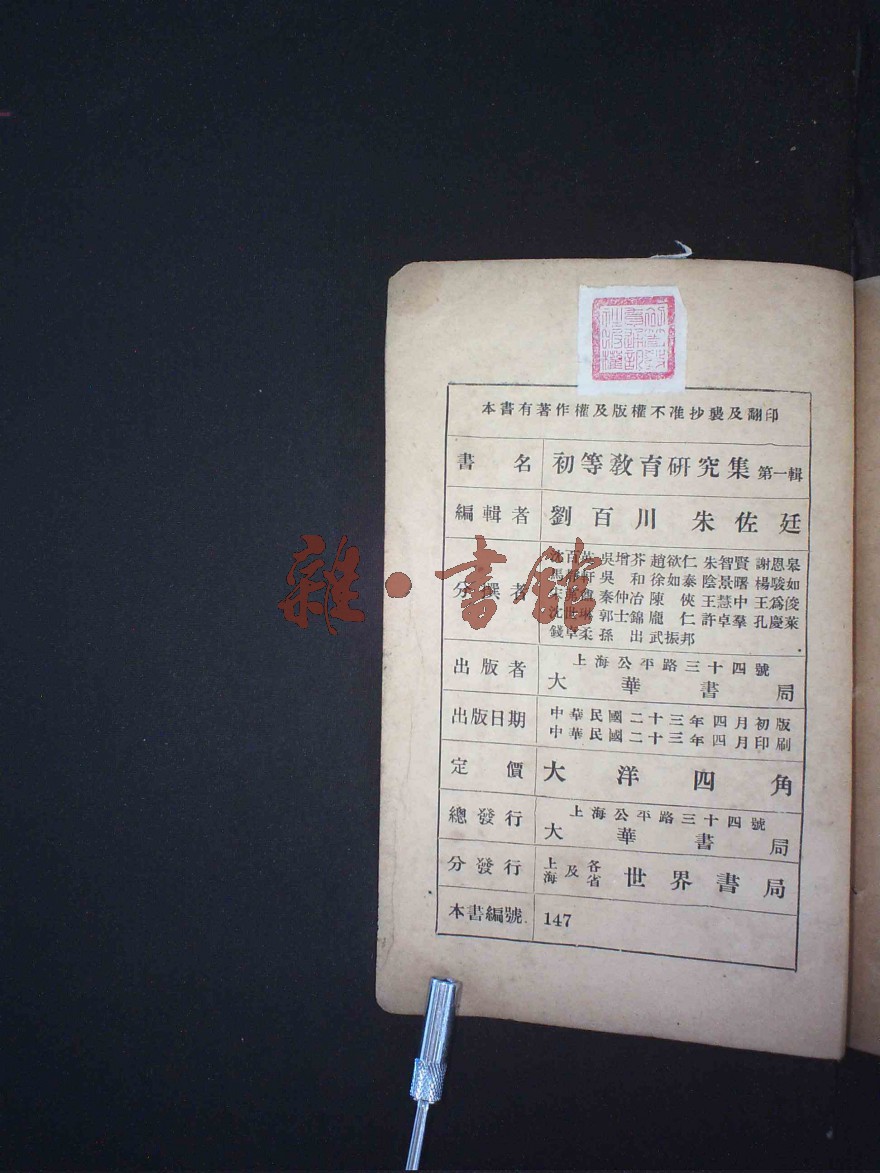 本書有著作權及版權不准抄襲及翻印
書名 初等教育研究集 第一輯
編輯者 劉百川 朱佐廷
分撰者
沈百英 吳增芥 趙欲仁 朱智賢 謝恩皋
吳和 徐如泰 陰景曙 楊駿如
秦仲冶 陳俠 王慧中 王爲俊
郭士錦 龐仁 許卓羣 孔慶萊
錢卓柔 孫出 武振邦
出版者 上海公平路三十四號
大華書局
出版日期 中華民國二十三年四月初版
中華民國二十三年四月印刷
定價 大洋四角
總發行 上海公平路三十四號
大華書局
分發行 上海及各省 世界書局
本書編號 147
雜·書館